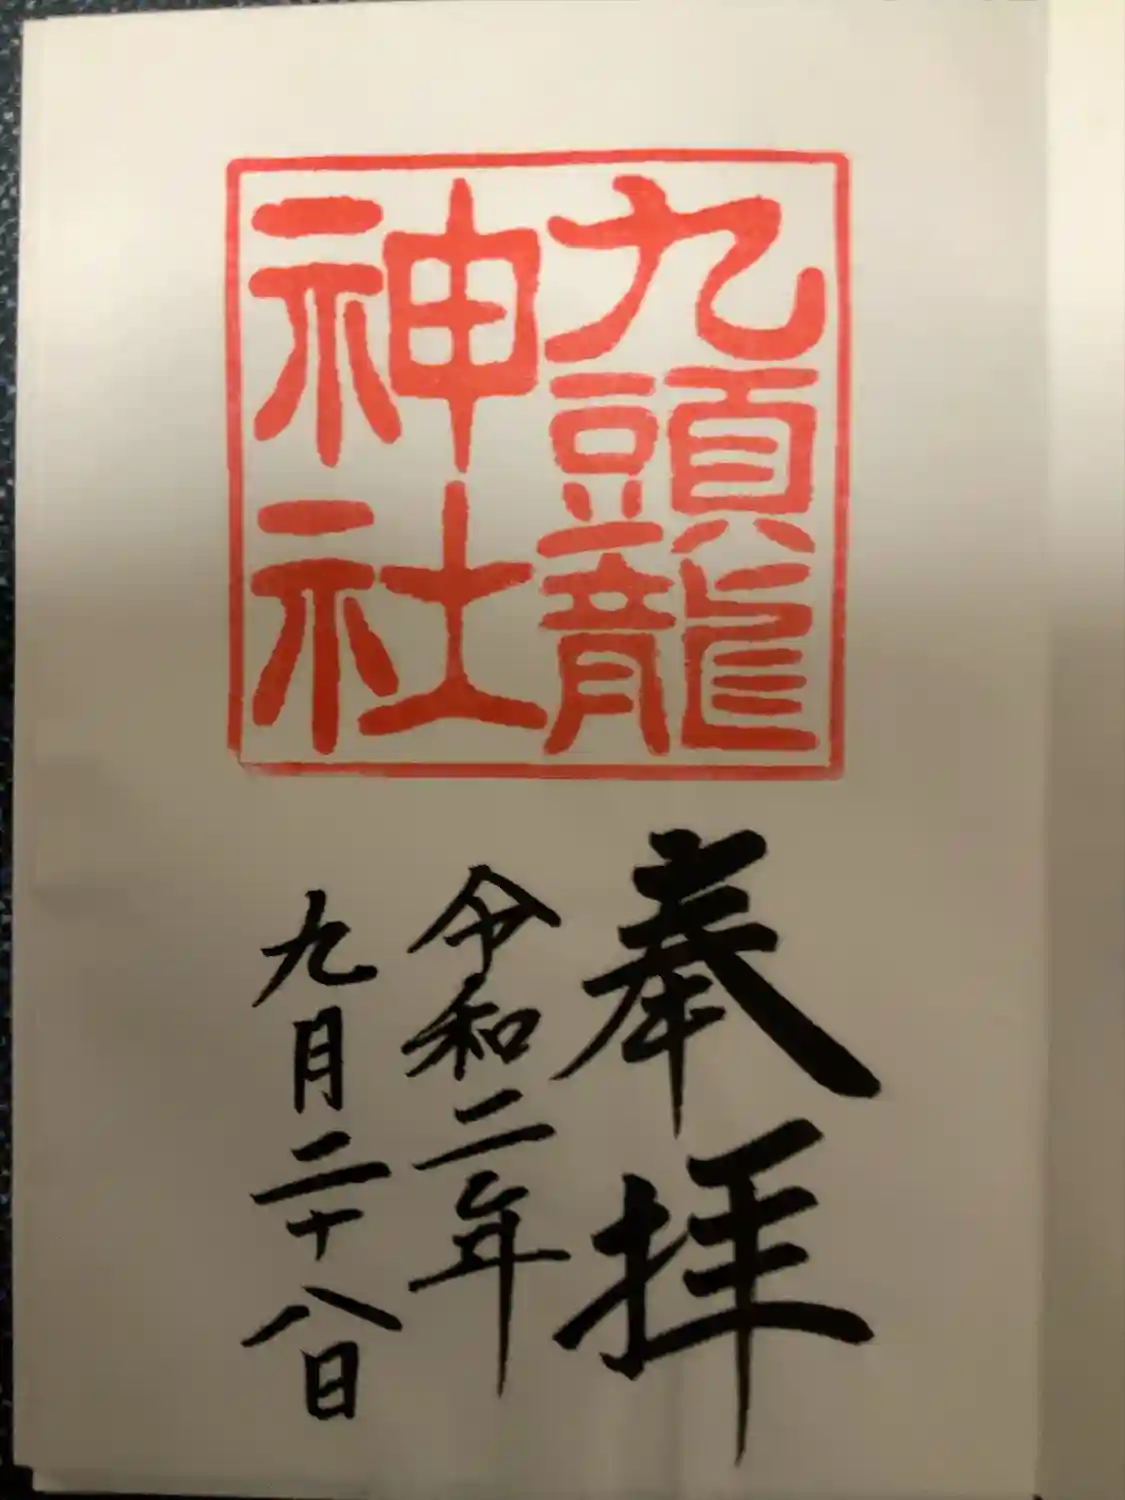 九頭龍
神社
奉拝
令和二年
九月二十八日